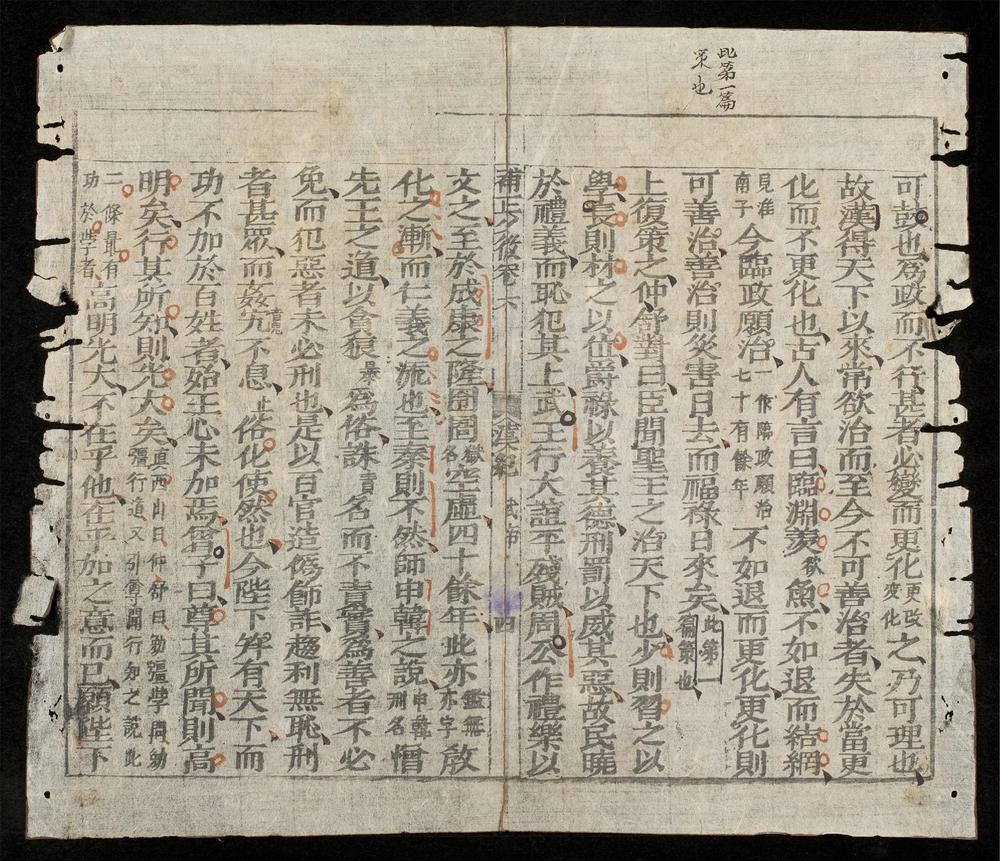 此第一篇
策也
可鼓也爲政而不行甚者必變而更化更改變化之乃可理也
故漢得天下以來常欲治而至今不可善治者失於當更
化而不更化也古人有言曰臨淵羨欲魚不如退而結網
見淮南子今臨政願治一作臨政願治七十有餘年不如退而更化更化則
可善治善治則災害日去而福祿日來矣此第一篇策也
上復策之仲舒對曰臣聞聖王之治天下也少則習之以
學長則材之以位爵祿以養其德刑罰以威其惡故民曉
於禮義而恥犯其上武王行大誼平殘賊周公作禮樂以
卷下 漢紀 武帝 四
文之至於成康之隆囹圄獄名空虛四十餘年此亦鑑無亦字敎
化之漸而仁義之流也至秦則不然師申韓之說申韓刑名憎
先王之道以貪狼暴爲俗誅責名而不責實爲善者不必
免而犯惡者未必刑也是以百官造僞飾詐趨利無恥刑
者甚眾而姦宄音鬼不息止俗化使然也今陛下幷有天下而
功不加於百姓者殆王心未加焉曾子曰尊其所聞則高
明矣行其所知則光大矣眞西山曰仲舒曰勉彊學問勉彊行道又引尊聞行知之說此
二條最有功於學者高明光大不在乎他在乎加之意而已願陛下